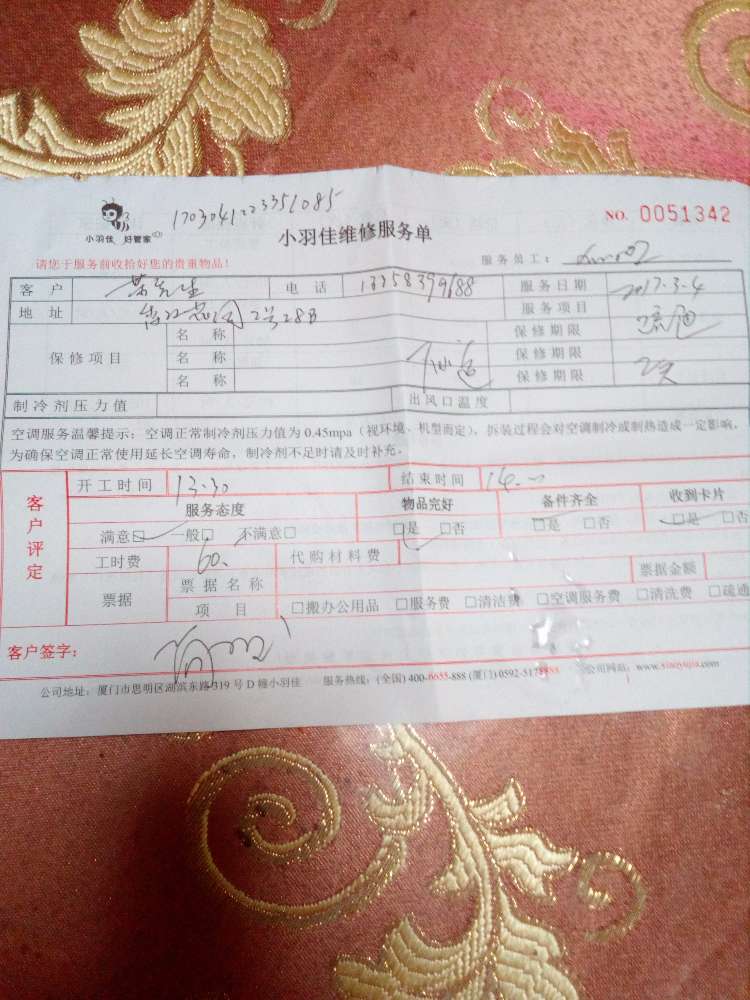 1703041223351085
小羽佳 好管家
小羽佳维修服务单
NO. 0051342
请您于服务前收拾好您的贵重物品!
服务员工:
客户
电话 13358399688
服务日期 2017.3.4
地址 2号28B
服务项目
保修项目
名称
保修期限
名称
保修期限
名称
保修期限
制冷剂压力值
出风口温度
空调服务温馨提示:空调正常制冷剂压力值为0.45mpa(视环境、机型而定),拆装过程会对空调制冷或制热造成一定影响,
为确保空调正常使用延长空调寿命,制冷剂不足时请及时补充。
客户评定
开工时间 13.30
结束时间 14.
服务态度
物品完好
备件齐全
收到卡片
满意□ 一般□ 不满意□
□是 □否
□是 □否
□是 □否
工时费 60.
代购材料费
票据
票据名称
票据金额
项目 □搬办公用品 □服务费 □清洁费 □空调服务费 □清洗费 □疏通
客户签字:
公司地址:厦门市思明区湖滨东路319号D幢小羽佳 服务热线:(全国)400-6655-888 (厦门)0592-5175 公司网站:www.xiaoyujia.com